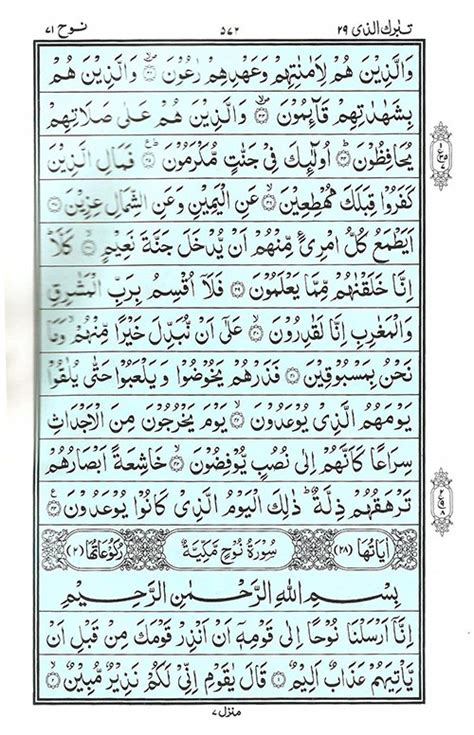 تبٰرك الذی ۲۹
۵۷۲
نوح ۷۱
وَالَّذِيْنَ هُمْ لِاَمٰنٰتِهِمْ وَعَهْدِهِمْ رٰعُوْنَ ۝۳۲ وَالَّذِيْنَ هُمْ
بِشَهٰدٰتِهِمْ قَآئِمُوْنَ ۝۳۳ وَالَّذِيْنَ هُمْ عَلٰى صَلَاتِهِمْ
يُحَافِظُوْنَ ۝۳۴ اُولٰٓئِكَ فِيْ جَنّٰتٍ مُّكْرَمُوْنَ ۝۳۵ فَمَالِ الَّذِيْنَ
كَفَرُوْا قِبَلَكَ مُهْطِعِيْنَ ۝۳۶ عَنِ الْيَمِيْنِ وَعَنِ الشِّمَالِ عِزِيْنَ ۝۳۷
اَيَطْمَعُ كُلُّ امْرِئٍ مِّنْهُمْ اَنْ يُّدْخَلَ جَنَّةَ نَعِيْمٍ ۝۳۸ كَلَّا ؕ
اِنَّا خَلَقْنٰهُمْ مِّمَّا يَعْلَمُوْنَ ۝۳۹ فَلَآ اُقْسِمُ بِرَبِّ الْمَشٰرِقِ
وَالْمَغٰرِبِ اِنَّا لَقٰدِرُوْنَ ۝۴۰ عَلٰٓى اَنْ نُّبَدِّلَ خَيْرًا مِّنْهُمْ وَمَا
نَحْنُ بِمَسْبُوْقِيْنَ ۝۴۱ فَذَرْهُمْ يَخُوْضُوْا وَيَلْعَبُوْا حَتّٰى يُلٰقُوْا
يَوْمَهُمُ الَّذِيْ يُوْعَدُوْنَ ۝۴۲ يَوْمَ يَخْرُجُوْنَ مِنَ الْاَجْدَاثِ
سِرَاعًا كَاَنَّهُمْ اِلٰى نُصُبٍ يُّوْفِضُوْنَ ۝۴۳ خَاشِعَةً اَبْصَارُهُمْ
تَرْهَقُهُمْ ذِلَّةٌ ؕ ذٰلِكَ الْيَوْمُ الَّذِيْ كَانُوْا يُوْعَدُوْنَ ۝۴۴
اٰيَاتُهَا (۲۸) سُوْرَةُ نُوْحٍ مَّكِّيَّةٌ رُكُوْعَاتُهَا (۲)
بِسْمِ اللّٰهِ الرَّحْمٰنِ الرَّحِيْمِ
اِنَّآ اَرْسَلْنَا نُوْحًا اِلٰى قَوْمِهٖٓ اَنْ اَنْذِرْ قَوْمَكَ مِنْ قَبْلِ اَنْ
يَّاْتِيَهُمْ عَذَابٌ اَلِيْمٌ ۝۱ قَالَ يٰقَوْمِ اِنِّيْ لَكُمْ نَذِيْرٌ مُّبِيْنٌ ۝۲
منزل ۷